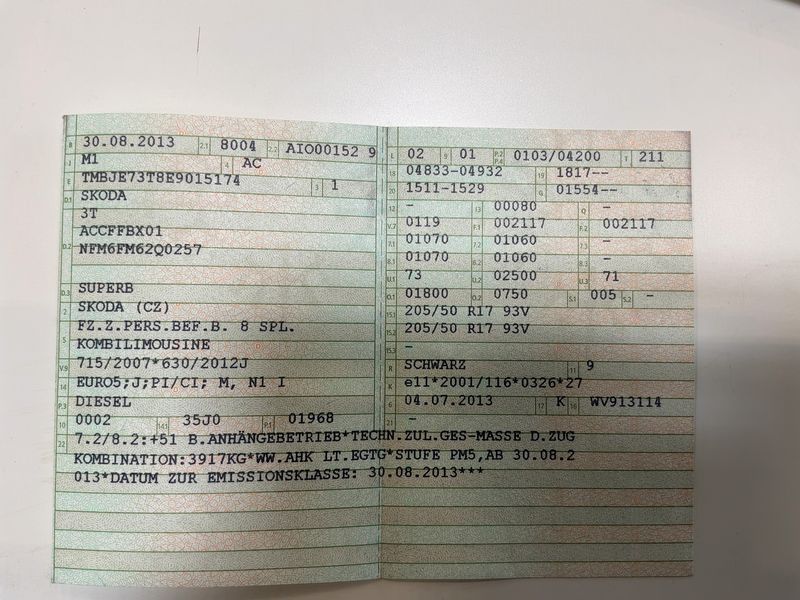 B 30.08.2013 2.1 8004 2.2 AIO00152 9
J M1 4 AC
E TMBJE73T8E9015174 3 1
D.1 SKODA
3T
D.2 ACCFFBX01
NFM6FM62Q0257
D.3 SUPERB
2 SKODA (CZ)
5 FZ.Z.PERS.BEF.B. 8 SPL.
KOMBILIMOUSINE
V.9 715/2007*630/2012J
14 EURO5;J;PI/CI; M, N1 I
P.3 DIESEL
10 0002 14.1 35J0 P.1 01968
L 02 9 01 P.2 P.4 0103/04200 T 211
18 04833-04932 19 1817--
20 1511-1529 G 01554--
12 - 13 00080 Q -
V.7 0119 F.1 002117 F.2 002117
7.1 01070 7.2 01060 7.3 -
8.1 01070 8.2 01060 8.3 -
U.1 73 U.2 02500 U.3 71
O.1 01800 O.2 0750 S.1 005 S.2 -
15.1 205/50 R17 93V
15.2 205/50 R17 93V
15.3 -
R SCHWARZ 11 9
K e11*2001/116*0326*27
6 04.07.2013 17 K 16 WV913114
21 -
22 7.2/8.2:+51 B.ANHÄNGEBETRIEB*TECHN.ZUL.GES-MASSE D.ZUG
KOMBINATION:3917KG*WW.AHK LT.EGTG*STUFE PM5,AB 30.08.2
013*DATUM ZUR EMISSIONSKLASSE: 30.08.2013***